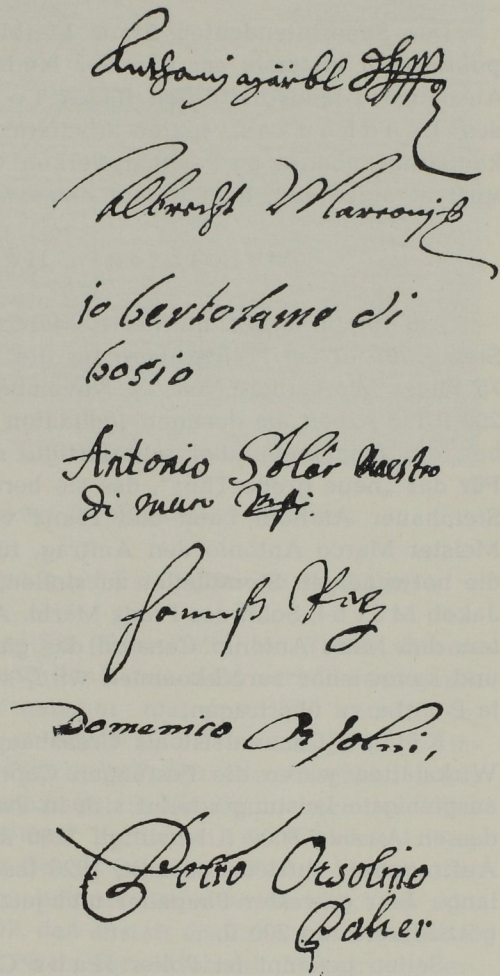 Anthonj gärbl
Albrecht Marconiß
io bertolame di
bosio
Antonio Solâr Maestro
di mur
Domenico Orsolni,
Petro Orsolino
Paller